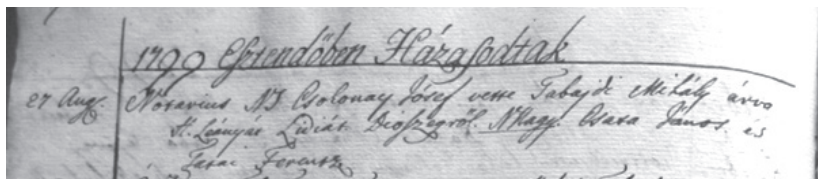 1799 Esztendőben Házasodtak
27 Aug. Nótárius NS Csolonay Jósef vette Tabajdi Mihály árva
H. Leányát Lidiát Dioszegről. NHagy. Csata János és
Tatai Ferentz